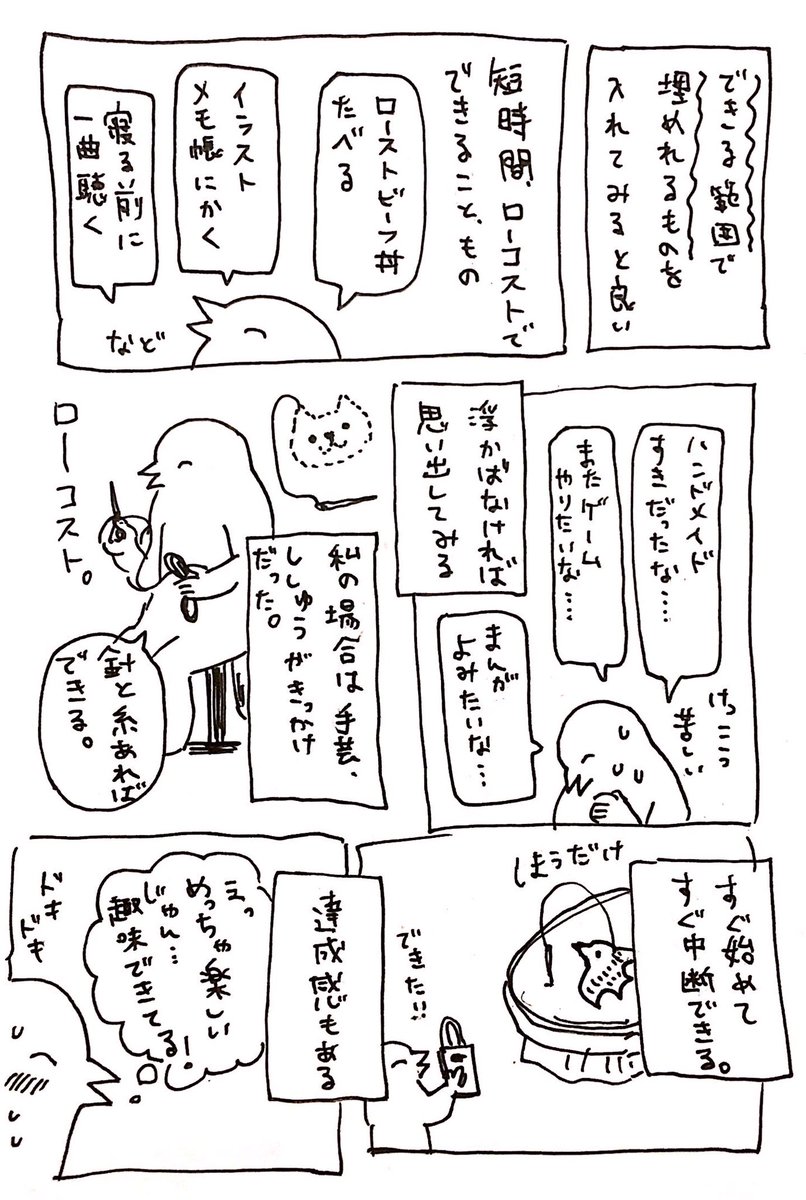 できる範囲で
埋めれるものを
入れてみると良い
短時間、ローコストで
できること、もの
ローストビーフ丼
たべる
イラスト
メモ帳にかく
寝る前に
一曲聴く
など
ハンドメイド
すきだったな……
またゲーム
やりたいな……
まんが
よみたいな…
けっこうっ
苦しい
浮かばなければ
思い出してみる
私の場合は手芸、
ししゅうがきっかけ
だった。
ローコスト。
針と糸あれば
できる。
すぐ始めて
すぐ中断できる。
しまうだけ
できた!!
達成感もある
えっ
めっちゃ楽しい
じゃん…
趣味できてる!
ドキ
ドキ